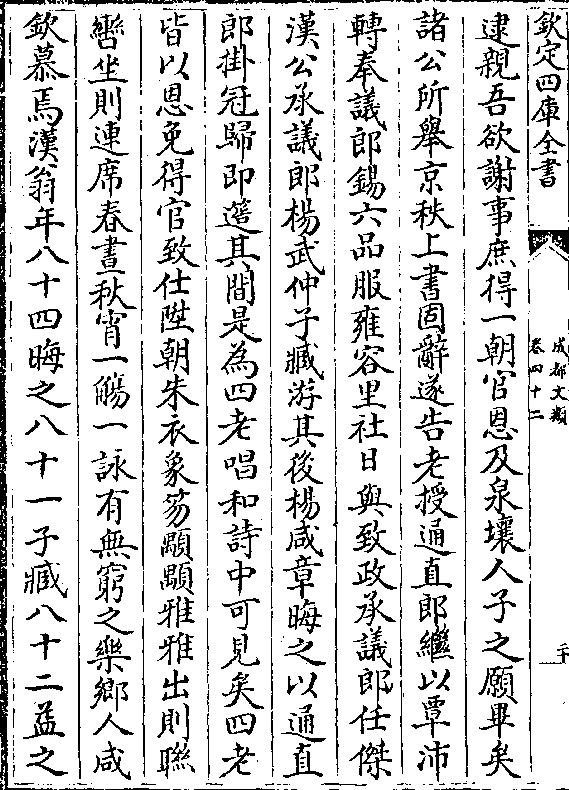 欽定四庫全書
成都文類
卷四十二
二十
逮親吾欲謝事庶得一朝官恩及泉壤人子之願畢矣
諸公所舉京秩上書固辭遂告老授通直郎繼以覃沛
轉奉議郎錫六品服雍容里社日與致政承議郎任傑
漢公承議郎楊武仲子臧游其後楊咸章晦之以通直
郎掛冠歸即簉其間是為四老唱和詩中可見矣四老
皆以恩免得官致仕陞朝朱衣象笏顒顒雅雅出則聯
轡坐則連席春晝秋宵一觴一詠有無窮之樂鄉人咸
欽慕焉漢翁年八十四晦之八十一子臧八十二益之